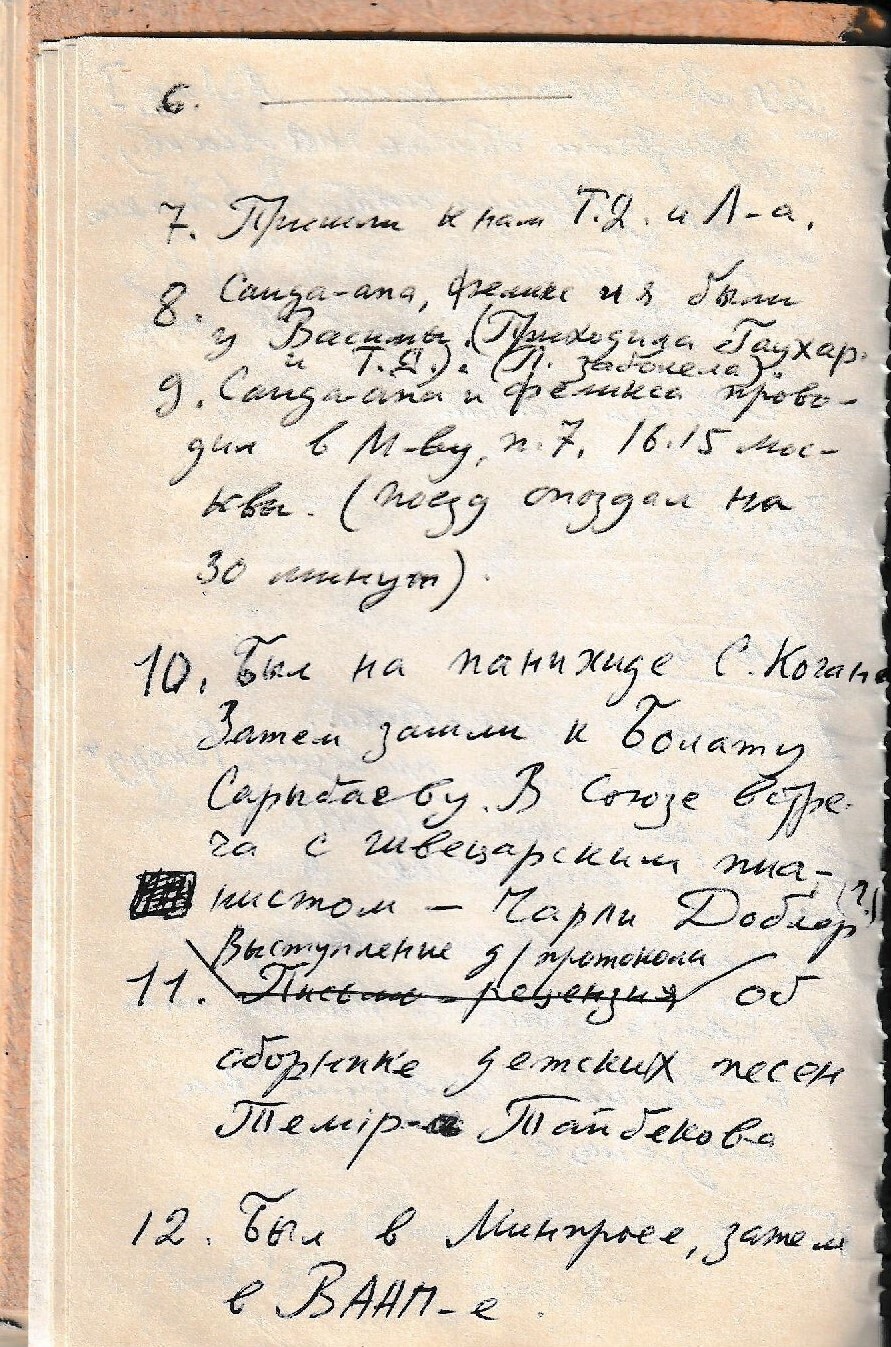 6. ———
7. Пришли к нам Т.Д. и Л-а.
8. Саида-апа, Феликс и я были
у Васимы. (Приходила Гаухар.
и Т.Д.). (Л. заболела).
9. Саида-апа и Феликса прово-
дил в М-ву, п. 7, 16.15 мос-
квы. (поезд опоздал на
30 минут).
10. Был на панихиде С. Когана
Затем зашли к Болату
Сарыбаеву. В Союзе встре-
ча с швецарским пиа-
нистом — Чарли Доблер (?)
Выступление д/протокола
11. Письмо - рецензия об
сборнике детских песен
Темір- Тайбекова
12. Был в Минпросе, затем
в ВААП-е.